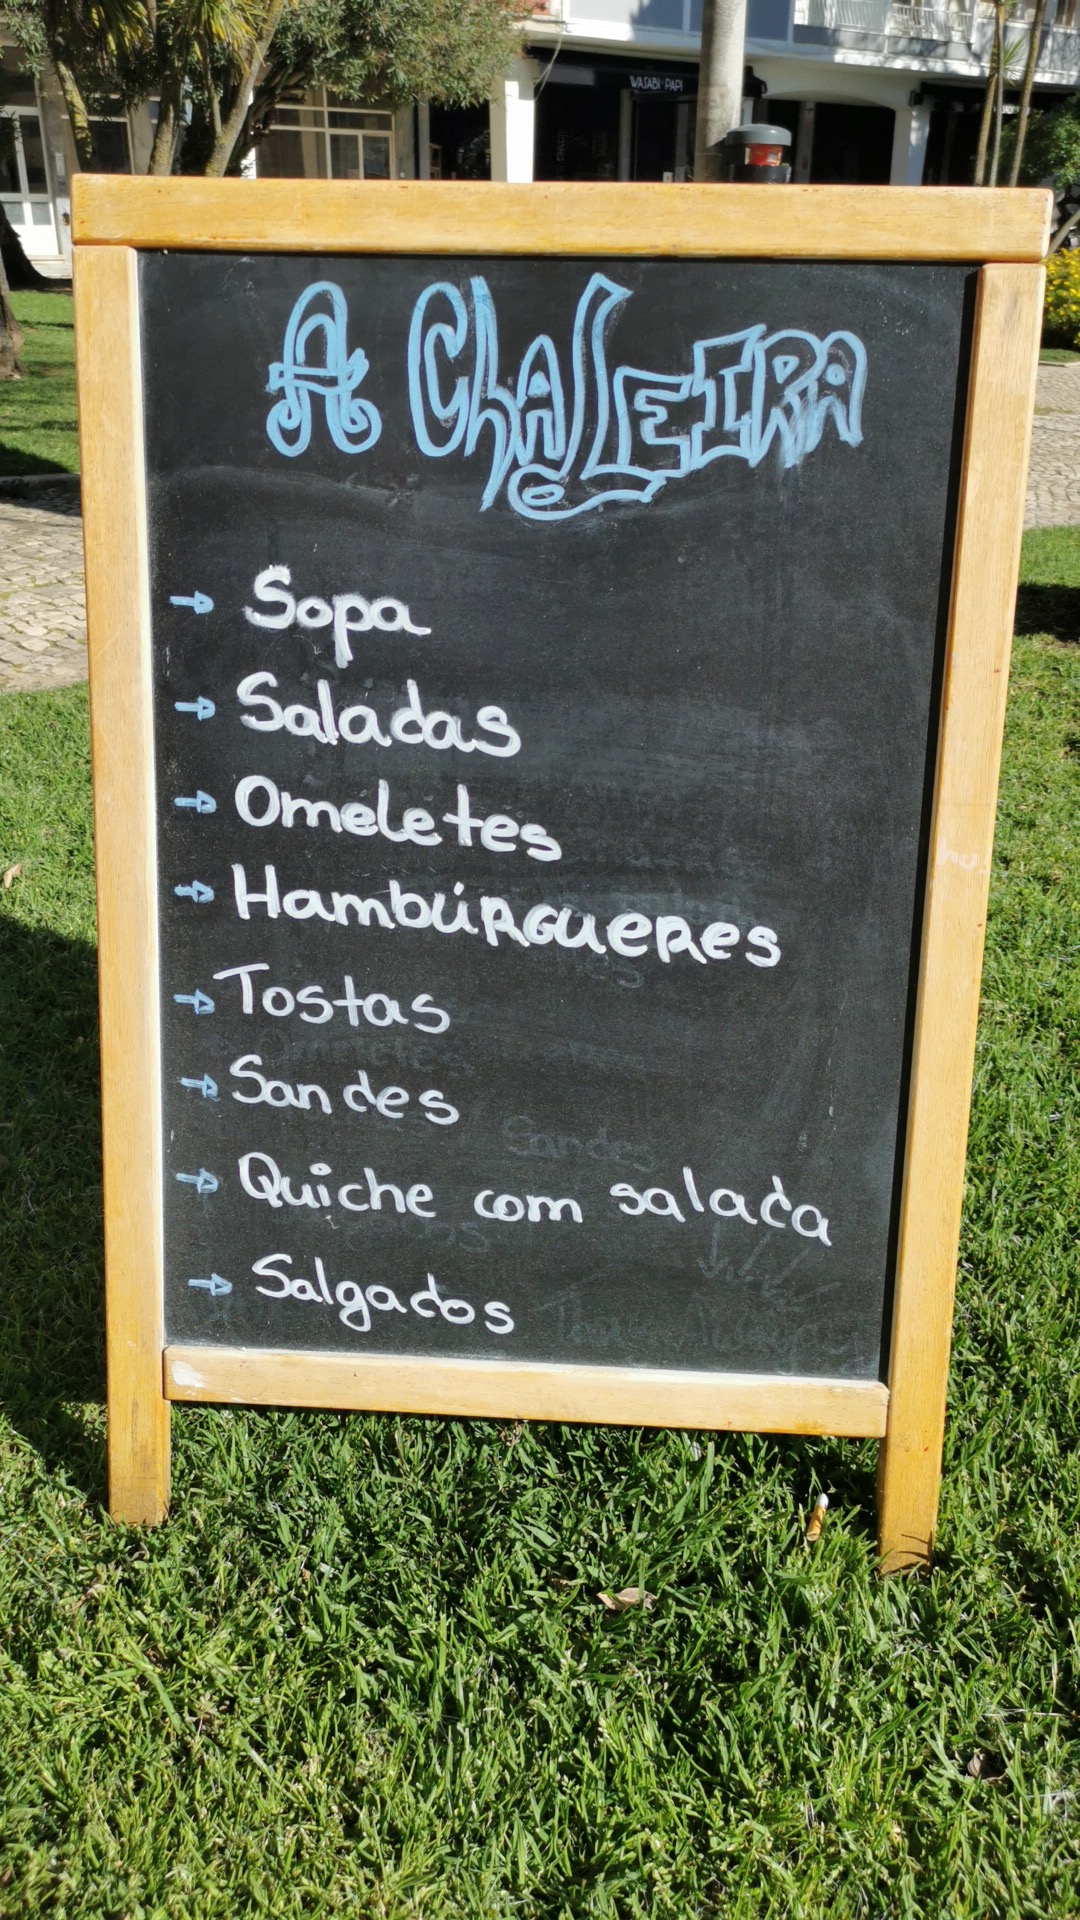 WASABI PAPI
A ChALEIRA
→ Sopa
→ Saladas
→ Omeletes
→ Hambúrgueres
→ Tostas
→ Sandes
→ Quiche com salada
→ Salgados